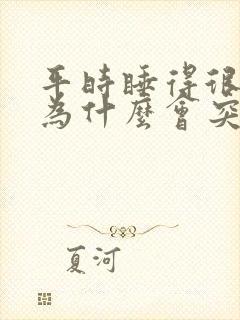 平時睡得很
為什麼會突
夏河